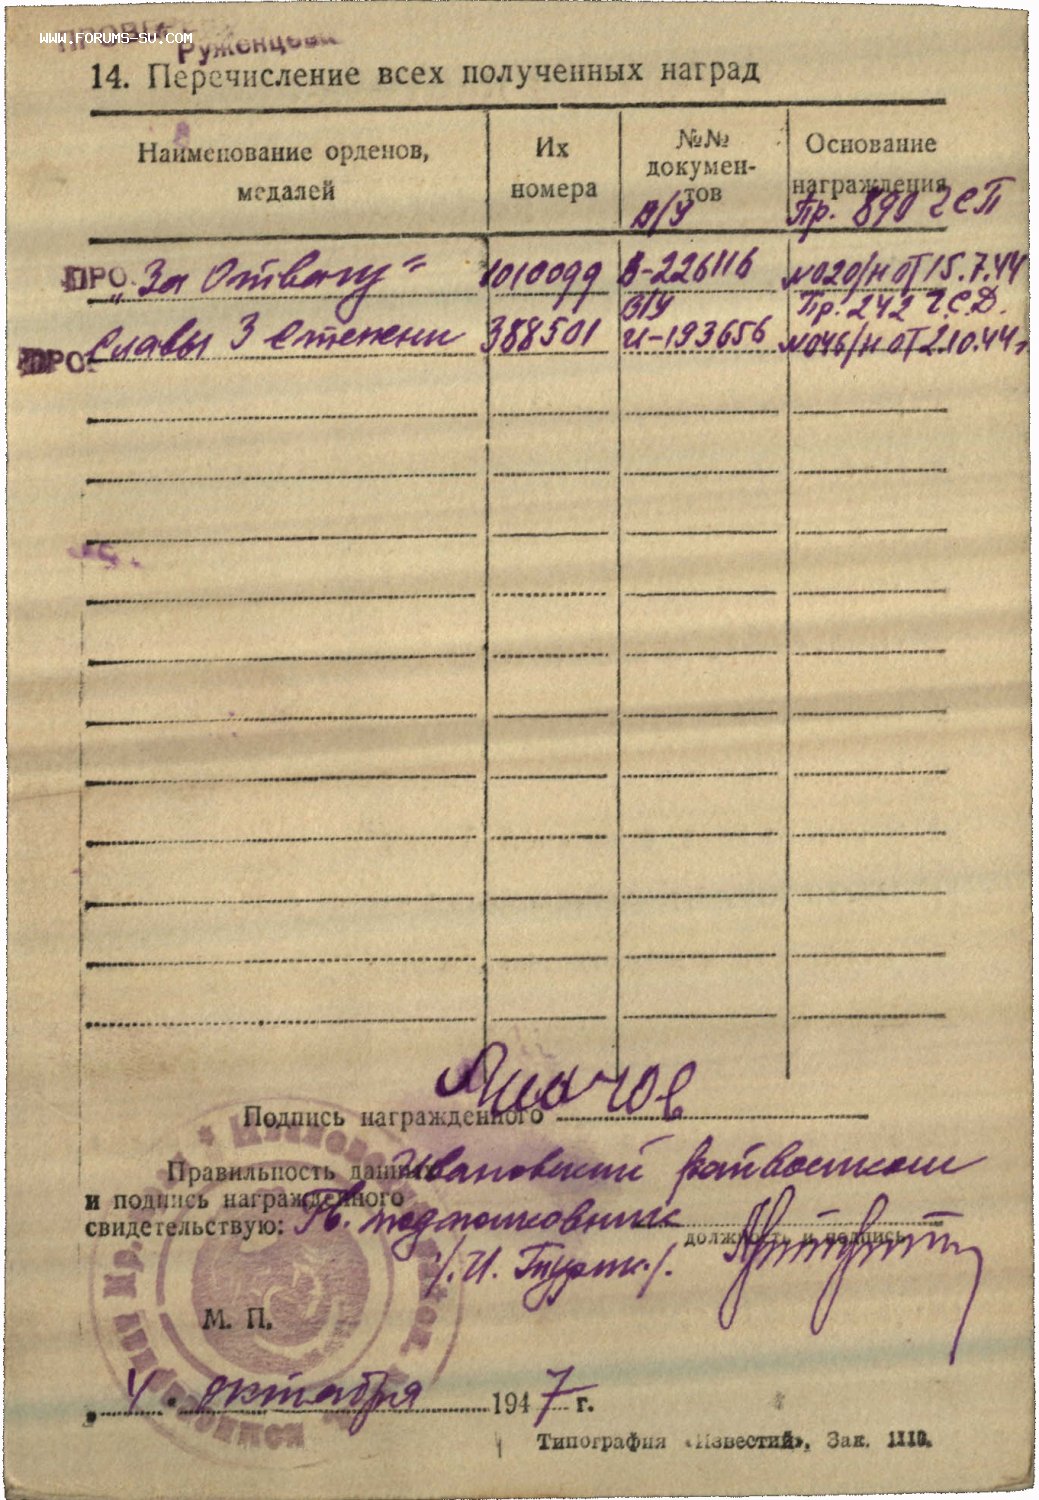 WWW.FORUMS-SU.COM
Руженцева
14. Перечисление всех полученных наград
Наименование орденов, медалей
Их номера
№№ документов
Основание награждения
В/У Пр. 890 ГСП
ПРО. „За Отвагу" 1010099 В-226116 №020/н от 15.7.44
В/У Пр. 242 Г.С.Д.
ПРО. Славы 3 степени 388501 И-193656 №046/н от 2.10.44 г
Подпись награжденного
Правильность данных Ивановский райвоенком
и подпись награжденного
свидетельствую: Гв. подполковник
должность и подпись
М. П.
„ 4 " октября 1947 г.
Типография «Известий», Зак. 1110.